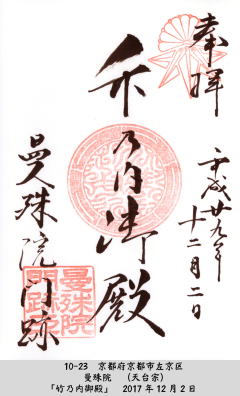 奉拝
平成廿九年
十二月二日
竹乃内御殿
曼殊院門跡
曼殊院
門跡
10-23 京都府京都市左京区
曼殊院 （天台宗）
「竹乃内御殿」 2017年12月2日